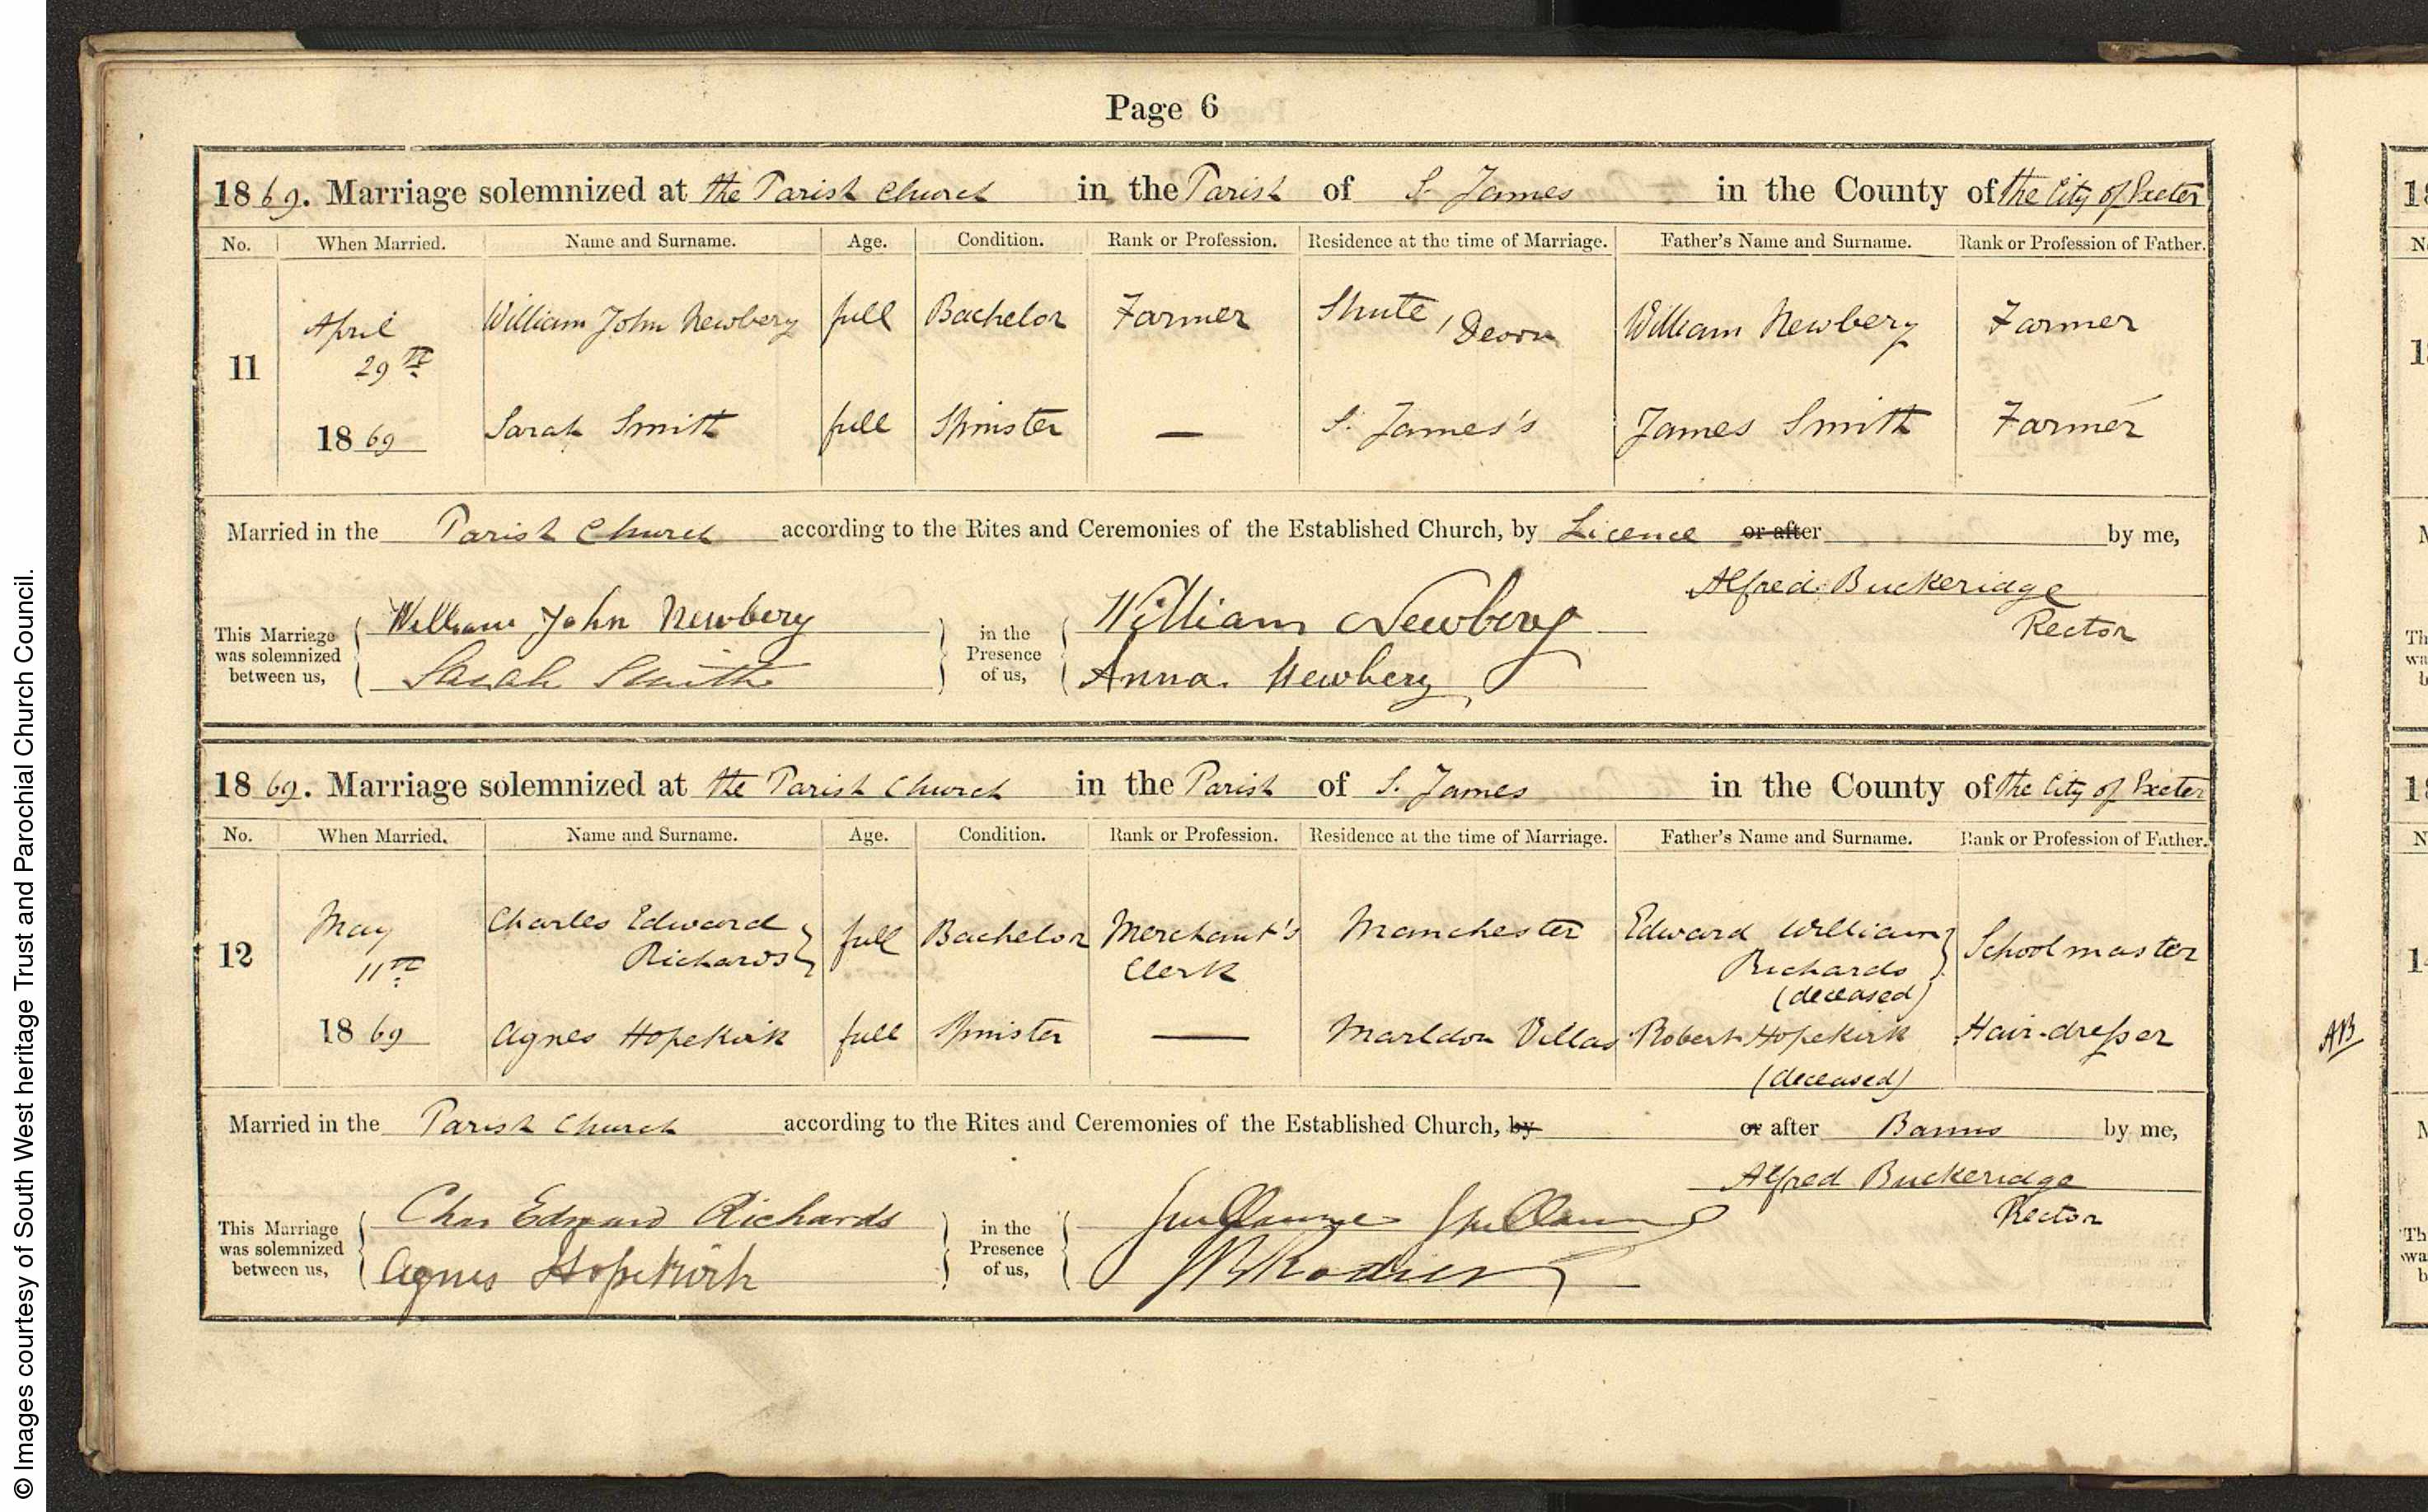 Page 6
1869. Marriage solemnized at the Parish Church in the Parish of S. James in the County of the City of Exeter
No. When Married. Name and Surname. Age. Condition. Rank or Profession. Residence at the time of Marriage. Father's Name and Surname. Rank or Profession of Father.
11 April 29th 1869 William John Newbery full Bachelor Farmer Shute, Devon William Newbery Farmer
Sarah Smith full Spinster — S. James's James Smith Farmer
Married in the Parish Church according to the Rites and Ceremonies of the Established Church, by Licence or after by me,
Alfred Buckeridge
Rector
This Marriage was solemnized between us, William John Newbery in the Presence of us, William Newbery
Sarah Smith Anna Newbery
1869. Marriage solemnized at the Parish Church in the Parish of S. James in the County of the City of Exeter
No. When Married. Name and Surname. Age. Condition. Rank or Profession. Residence at the time of Marriage. Father's Name and Surname. Rank or Profession of Father.
12 May 11th 1869 Charles Edward Richards full Bachelor Merchant's Clerk Manchester Edward William Richards (deceased) Schoolmaster
Agnes Hopekirk full Spinster — Marldon Villas Robert Hopekirk (deceased) Hair-dresser
Married in the Parish Church according to the Rites and Ceremonies of the Established Church, by or after Banns by me,
Alfred Buckeridge
Rector
This Marriage was solemnized between us, Chas Edward Richards in the Presence of us,
Agnes Hopekirk
AB
© Images courtesy of South West heritage Trust and Parochial Church Council.